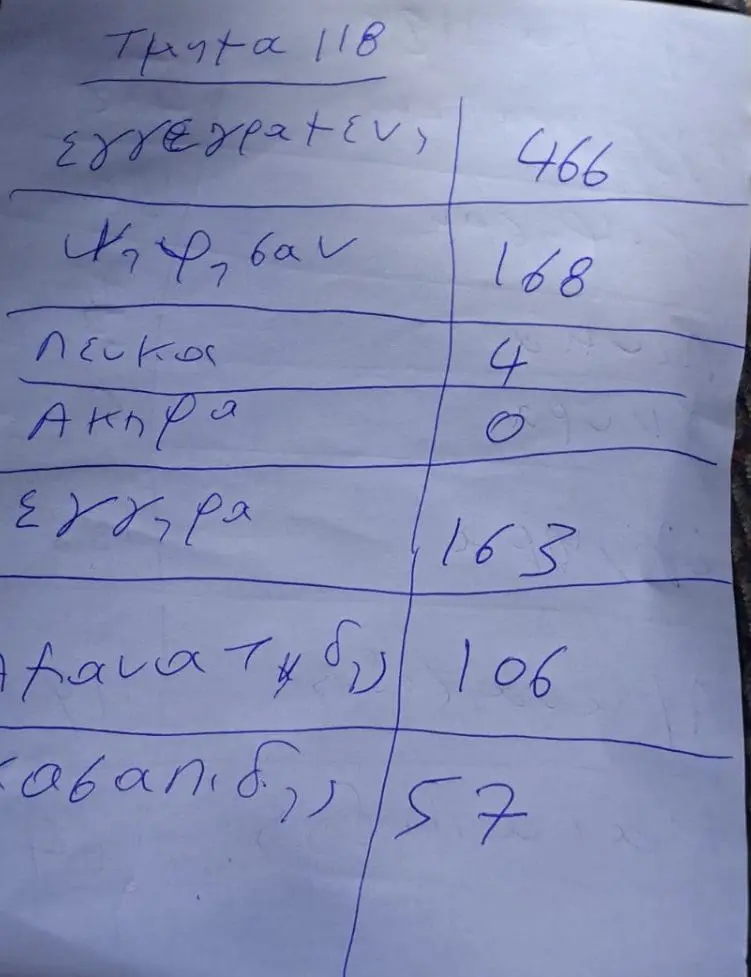 Τμημα 118
εγγεγραμενη 466
Ψηφησαν 168
Λευκα 4
Ακηρα 0
εγγηρα 163
Αμανατιδης 106
Κασαπιδης 57